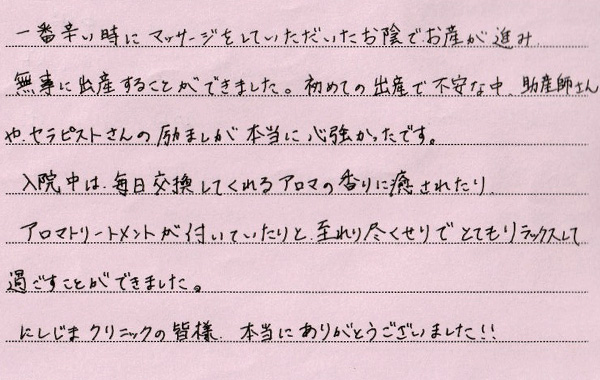 一番辛い時にマッサージをしていただいたお陰でお産が進み、
無事に出産することができました。初めての出産で不安な中、助産師さん
や、セラピストさんの励ましが本当に心強かったです。
入院中は、毎日交換してくれるアロマの香りに癒されたり、
アロマトリートメントが付いていたりと、至れり尽くせりでとてもリラックスして
過ごすことができました。
にしじまクリニックの皆様、本当にありがとうございました!!